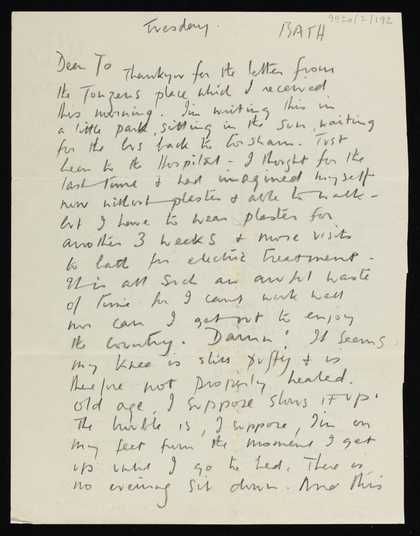 Tuesday.
BATH
9920/2/192
Dear Jo
Thankyou for the letter from
the Tonzens place which I received
this morning. I'm writing this in
a little park, sitting in the sun, waiting
for the bus back to Corsham. Just
been to the Hospital - I thought for the
last time & had imagined myself
now without plaster & able to walk -
but I have to wear plaster for
another 3 weeks & more visits
to bath for electric treatment -
It is all such an awful waste
of time for I cant work well
nor can I get out to enjoy
the country. Damn! It seems
my knee is still puffy & is
therefore not properly healed.
Old age, I suppose slows it up.
The trouble is, I suppose, I'm on
my feet from the moment I get
up until I go to bed. There is
no evening sit down. And this